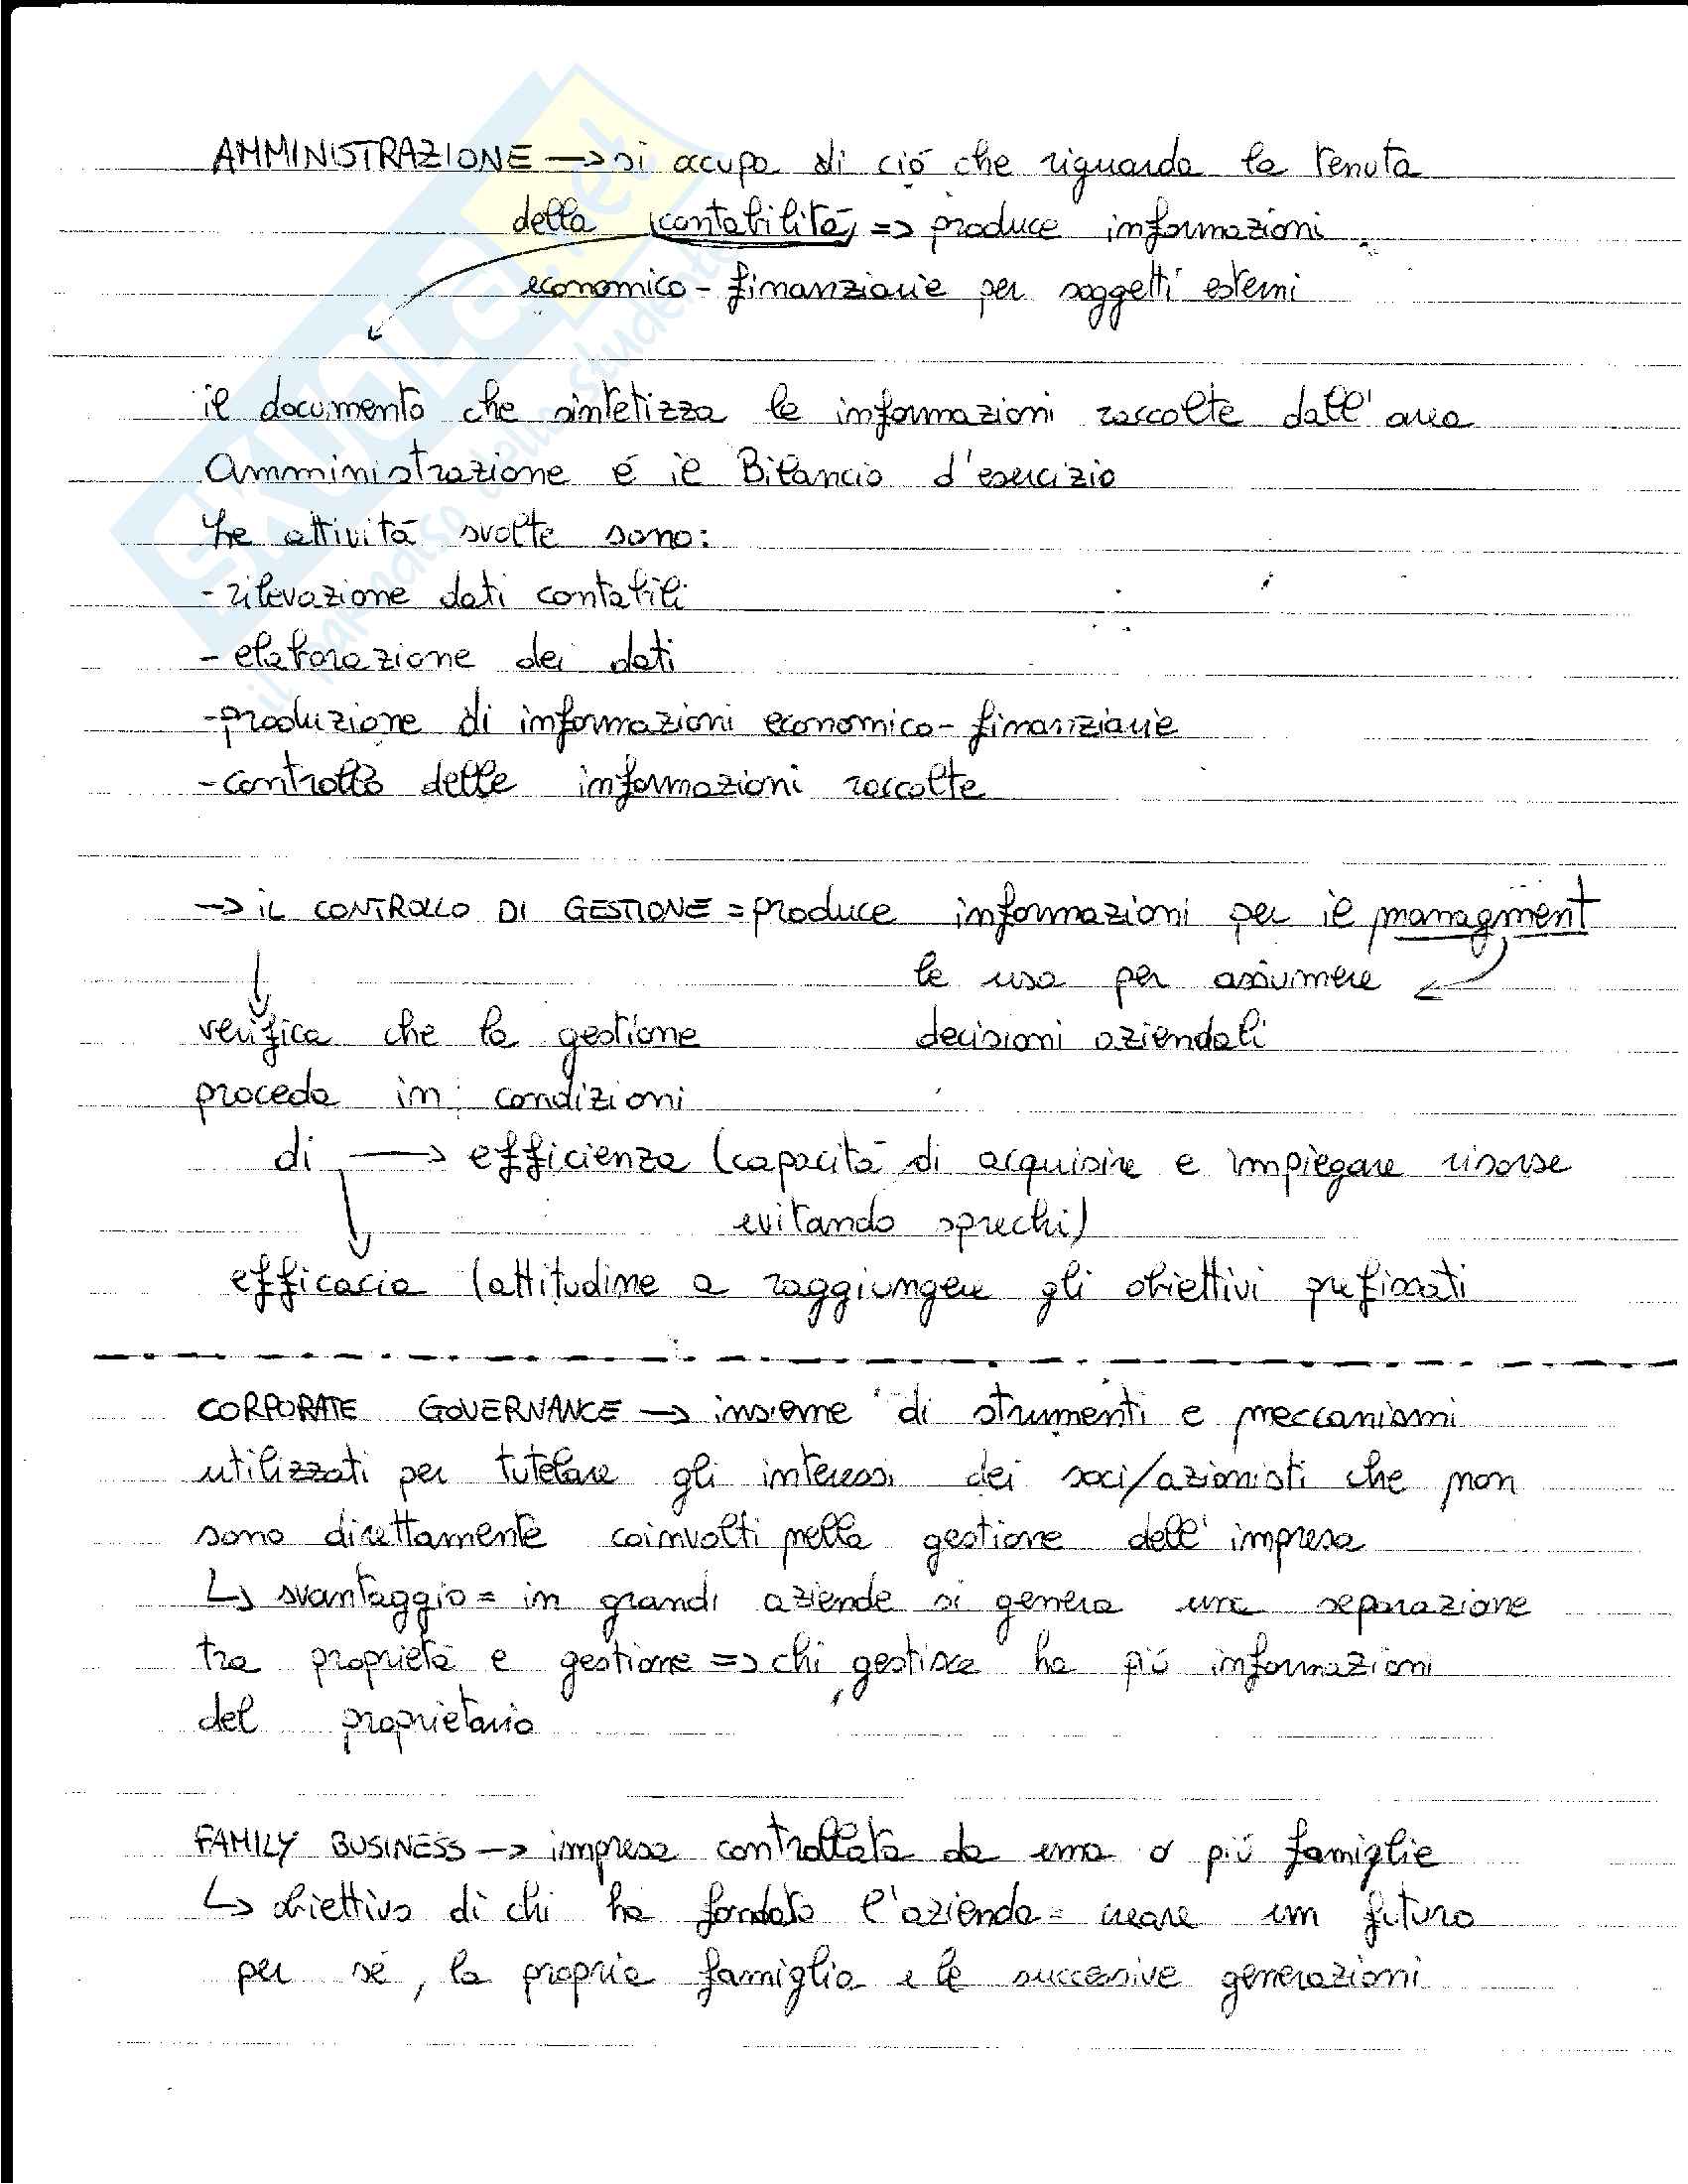 AMMINISTRAZIONE → si occupa di ció che riguarda la tenuta
della (contabilità) => produce informazioni
economico - finanziarie per soggetti esterni
il documento che sintetizza le informazioni raccolte dall' area
Amministrazione é il Bilancio d'esercizio
Le attività svolte sono:
- rilevazione dati contabili
- elaborazione dei dati
- produzione di informazioni economico - finanziarie
- controllo delle informazioni raccolte
→ IL CONTROLLO DI GESTIONE = produce informazioni per il managment
le usa per assumere
decisioni aziendali
verifica che la gestione
proceda in condizioni
di → efficienza (capacità di acquisire e impiegare risorse
evitando sprechi)
efficacia (attitudine a raggiungere gli obiettivi prefissati
CORPORATE GOVERNANCE → insieme di strumenti e meccanismi
utilizzati per tutelare gli interessi dei soci/azionisti che non
sono direttamente coinvolti nella gestione dell' impresa
↳ svantaggio = in grandi aziende si genera una separazione
tra proprietà e gestione => chi gestisce ha piú informazioni
del proprietario
FAMILY BUSINESS → impresa controllata da una o piú famiglie
↳ obiettivo di chi ha fondato l'azienda = creare un futuro
per sé, la propria famiglia e le successive generazioni
SKUOLA.net
il paradiso dello studente